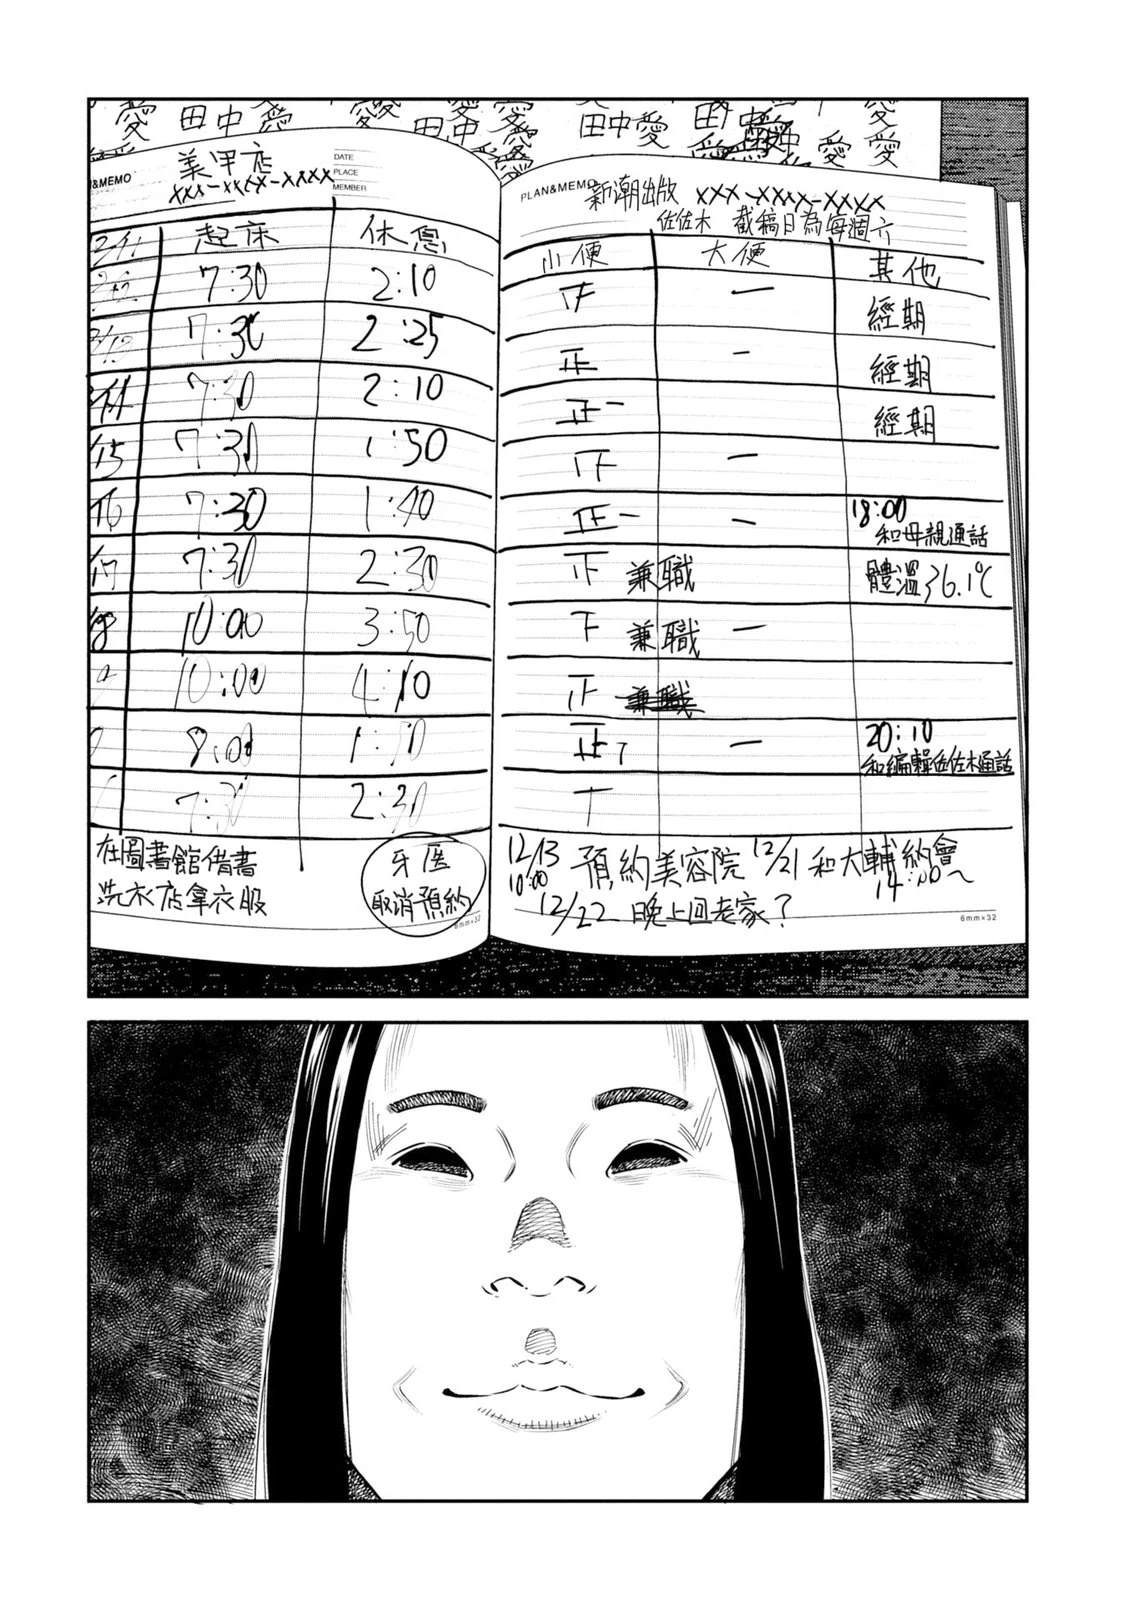 愛 田中愛 愛 田中愛 愛 田中愛 田中愛 愛
愛 愛 愛
&MEMO
美甲店
xxx-xxxx-xxxx
DATE
PLACE
MEMBER
起床 休息
7:30 2:10
7:30 2:25
7:30 2:10
15 7:30 1:50
16 7:30 1:40
17 7:30 2:30
18 10:00 3:50
10:00 4:10
8:00 1:50
7:30 2:30
在圖書館借書
洗衣店拿衣服
牙医
取消預約
6mm×32
PLAN&MEMO
新潮出版 xxx-xxxx-xxxx
佐佐木 截稿日為每週六
小便 大便 其他
正 一 經期
正 一 經期
正一 經期
正 一
正一 一 18:00
和母親通話
正 兼職 體溫36.1℃
下 兼職 一
正 兼職
正丅 一 20:10
和編輯佐佐木通話
丅
12/13 預約美容院 12/21 和大輔約會
10:00 14:00〜
12/22 晚上回老家?
6mm×32